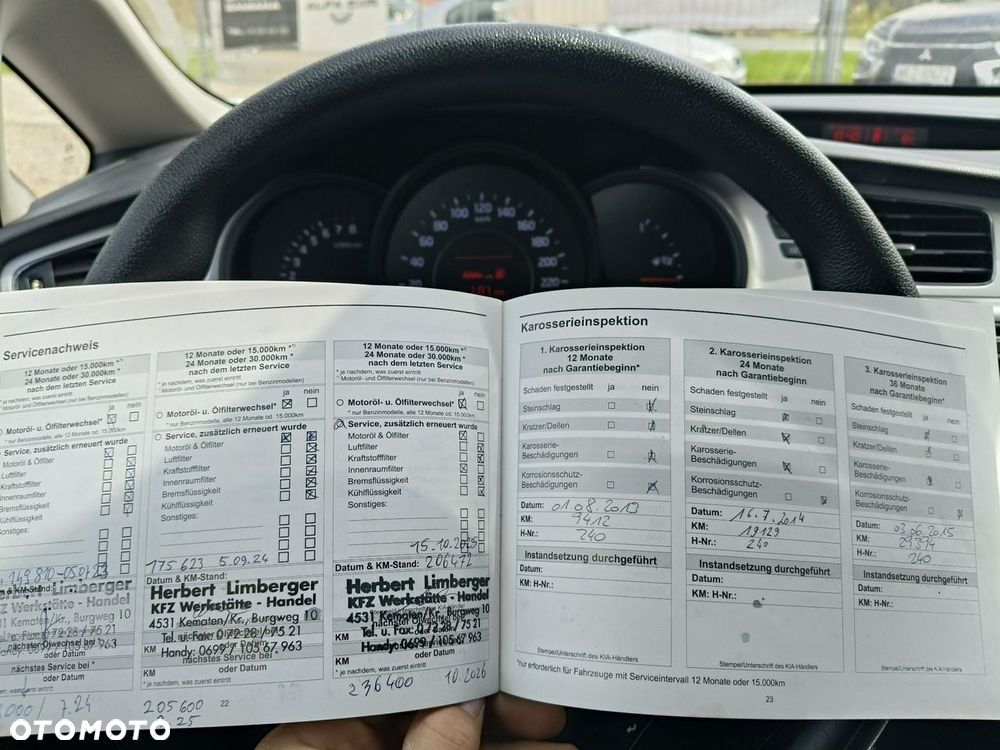 120
100
140
80
160
60
180
40
200
20
220
Servicenachweis
12 Monate oder 15.000km *¹⁾
24 Monate oder 30.000km *
nach dem letzten Service
* je nachdem, was zuerst eintritt
Motoröl- und Ölfilterwechsel (nur bei Benzinmodellen)
ja
Motoröl- u. Ölfilterwechsel*
Service, zusätzlich erneuert wurde
Motoröl & Ölfilter
Luftfilter
Kraftstofffilter
Innenraumfilter
Bremsflüssigkeit
Kühlflüssigkeit
Sonstiges:
149 810
Herbert Limberger
KFZ Werkstätte - Handel
oder Datum
nächstes Service bei *
oder Datum
7.24
12 Monate oder 15.000km *¹⁾
24 Monate oder 30.000km *
nach dem letzten Service
* je nachdem, was zuerst eintritt
¹⁾ Motoröl- und Ölfilterwechsel (nur bei Benzinmodellen)
ja nein
Motoröl- u. Ölfilterwechsel*
*nur Benzinmodelle, alle 12 Monate od. 15.000km
Service, zusätzlich erneuert wurde
Motoröl & Ölfilter
Luftfilter
Kraftstofffilter
Innenraumfilter
Bremsflüssigkeit
Kühlflüssigkeit
Sonstiges:
175 623 5.09.24
Datum & KM-Stand:
Herbert Limberger
KFZ Werkstätte - Handel
4531 Kematen/Kr., Burgweg 10
Tel. u. Fax: 0 72 28 / 75 21
Handy: 0699 / 105 67 963
KM
nächstes Service bei
KM oder Datum
* je nachdem, was zuerst eintritt
205600
22
12 Monate oder 15.000km *¹⁾
24 Monate oder 30.000km *
nach dem letzten Service
* je nachdem, was zuerst eintritt
¹⁾ Motoröl- und Ölfilterwechsel (nur bei Benzinmodellen)
ja nein
Motoröl- u. Ölfilterwechsel*
*nur Benzinmodelle, alle 12 Monate od. 15.000km
Service, zusätzlich erneuert wurde
Motoröl & Ölfilter
Luftfilter
Kraftstofffilter
Innenraumfilter
Bremsflüssigkeit
Kühlflüssigkeit
Sonstiges:
15.10.2025
Datum & KM-Stand: 206472
Herbert Limberger
KFZ Werkstätte - Handel
4531 Kematen/Kr., Burgweg 10
Tel. u. Fax: 0 72 28 / 75 21
Handy: 0699 / 105 67 963
KM oder Datum
nächstes Service bei
KM oder Datum
* je nachdem, was zuerst eintritt
236400 10.2026
Karosserieinspektion
1. Karosserieinspektion
12 Monate
nach Garantiebeginn*
Schaden festgestellt ja nein
Steinschlag
Kratzer/Dellen
Karosserie-
Beschädigungen
Korrosionsschutz-
Beschädigungen
Datum: 01.08.2013
KM: 9412
H-Nr.: 240
Instandsetzung durchgeführt
Datum:
KM: H-Nr.:
Stempel/Unterschrift des KIA-Händlers
2. Karosserieinspektion
24 Monate
nach Garantiebeginn*
Schaden festgestellt ja nein
Steinschlag
Kratzer/Dellen
Karosserie-
Beschädigungen
Korrosionsschutz-
Beschädigungen
Datum: 16.7.2014
KM: 19129
H-Nr.: 240
Instandsetzung durchgeführt
Datum:
KM: H-Nr.:
Stempel/Unterschrift des KIA-Händlers
3. Karosserieinspektion
36 Monate
nach Garantiebeginn*
Schaden festgestellt ja nein
Steinschlag
Kratzer/Dellen
Karosserie-
Beschädigungen
Korrosionsschutz-
Beschädigungen
Datum: 03.06.2015
KM:
H-Nr.: 240
Instandsetzung durchgeführt
Datum:
KM: H-Nr.:
Stempel/Unterschrift des KIA-Händlers
*nur erforderlich für Fahrzeuge mit Serviceintervall 12 Monate oder 15.000km
23
OTOMOTO